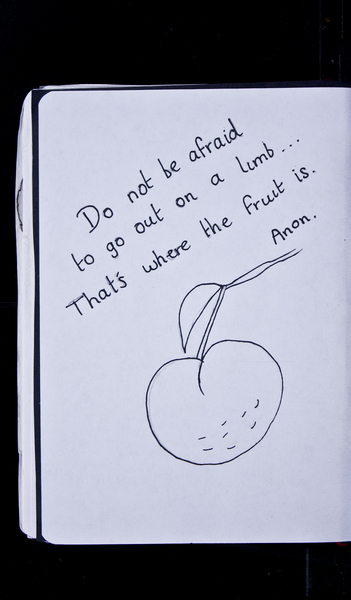 Do not be afraid
to go out on a limb...
That's where the fruit is.
Anon.